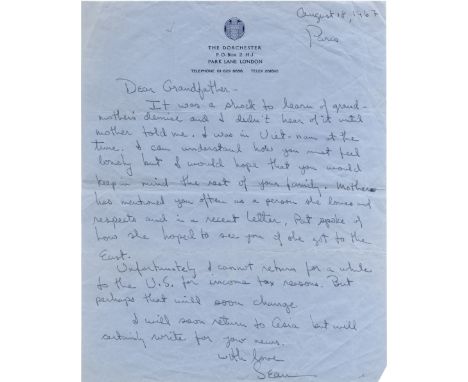 August 18, 1967
Paris
THE DORCHESTER
P.O. Box 2 H.J
PARK LANE LONDON
TELEPHONE 01-629 8888 TELEX
Dear Grandfather -
It was a shock to learn of grand-
mother's demise and I didn't hear of it until
mother told me. I was in Viet-nam at the
time. I can understand how you must feel
lonely but I would hope that you would
keep in mind the rest of your family. Mother
has mentioned you often as a person she loves and
respects and in a recent letter, Pat spoke of
how she hoped to see you if she got to the
East.
Unfortunately I cannot return for a while
to the U.S. for income tax reasons. But
perhaps that will soon change
I will soon return to Asia but will
certainly write for your news.
with love
Sean